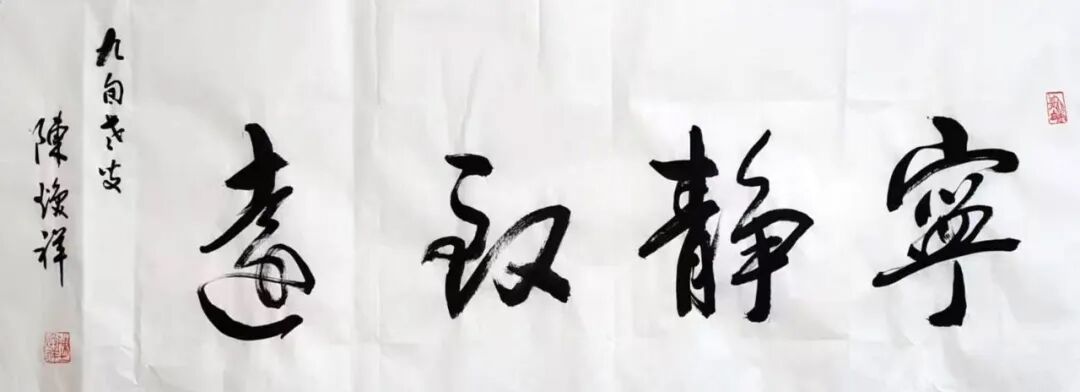 寧静致遠
九旬老叟
陳焕祥